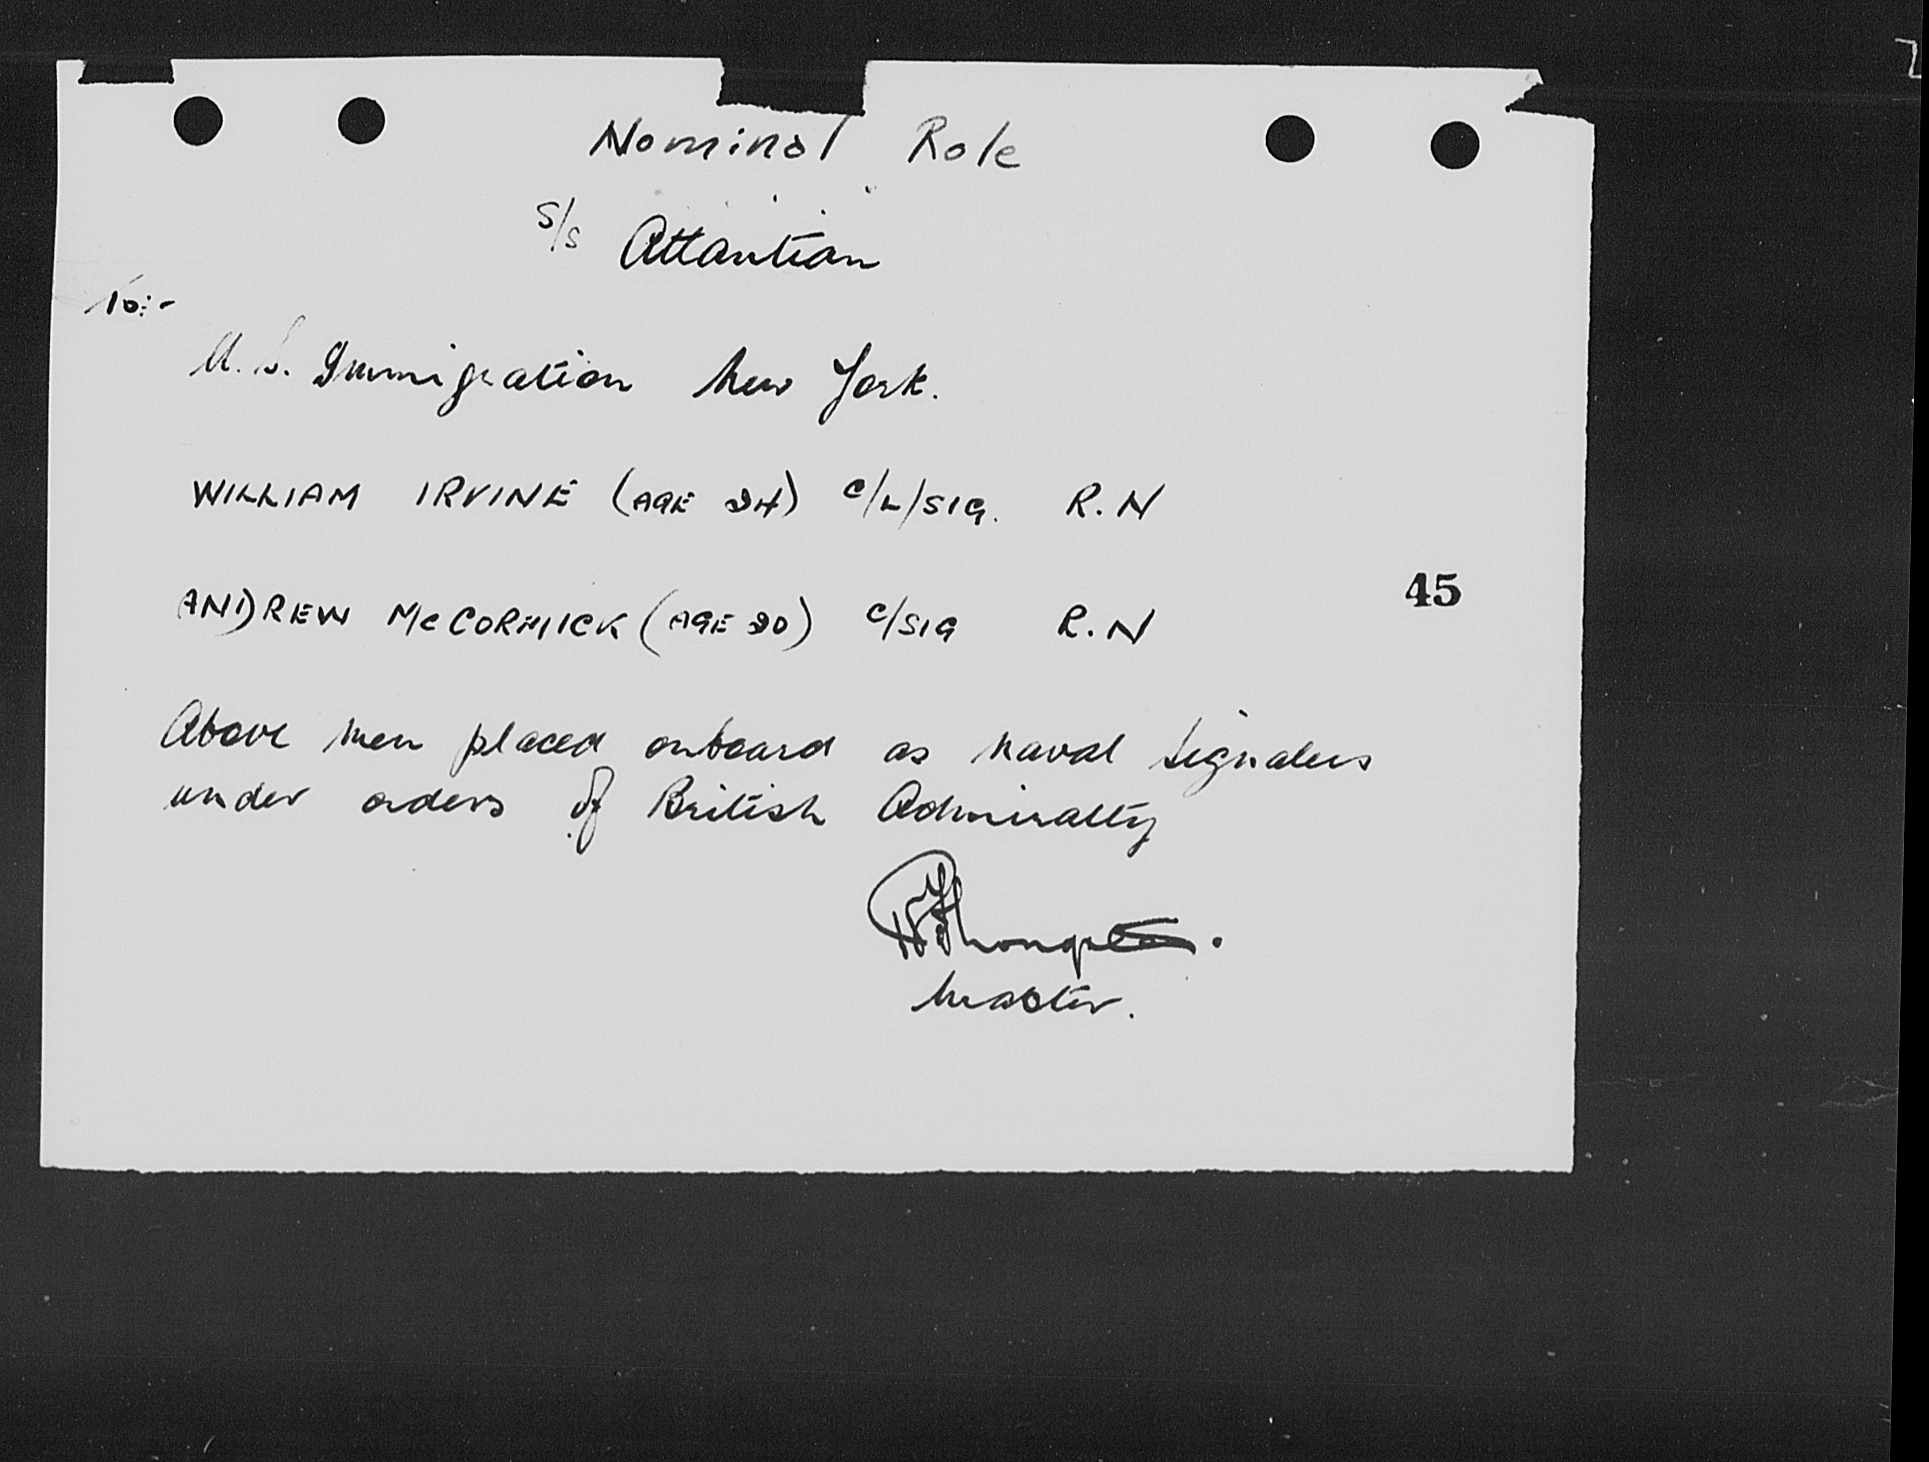 Nominal Role
S/S Attantian
To:-
U.S. Immigration New York.
WILLIAM IRVINE (AGE 24) C/L/SIG. R.N
ANDREW McCORMICK (AGE 20) C/SIG R.N
45
Above men placed onboard as Naval Signalers
under orders of British Admiralty
Master.